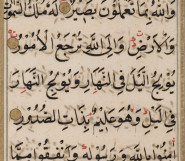 والله بما تعملون بصير له ملك السموات
والارض والى الله ترجع الامور
يولج الليل في النهار ويولج النهار
في الليل وهو عليم بذات الصدور
بالله ورسوله وانفقوا مما